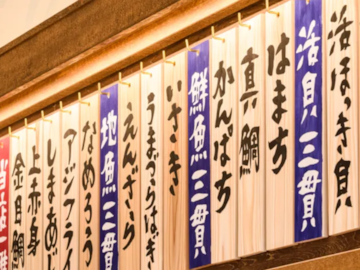 活ほっき貝
活貝三貫
はまち
真鯛
かんぱち
鮮魚三貫
いさき
うまづらはぎ
えんざら
地魚三貫
なめろう
アジフライ
しまあじ
上赤身
金目鯛